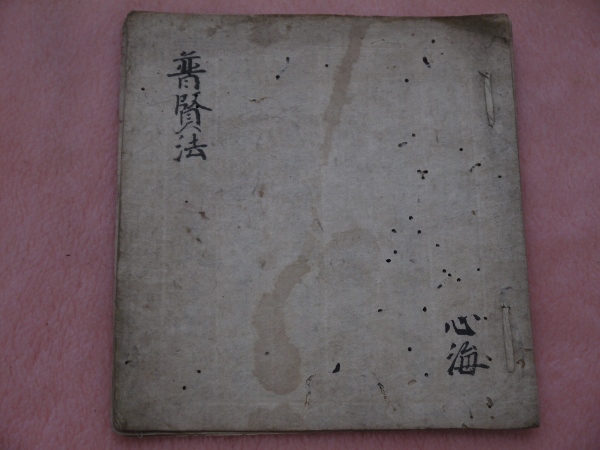 普賢法
心海